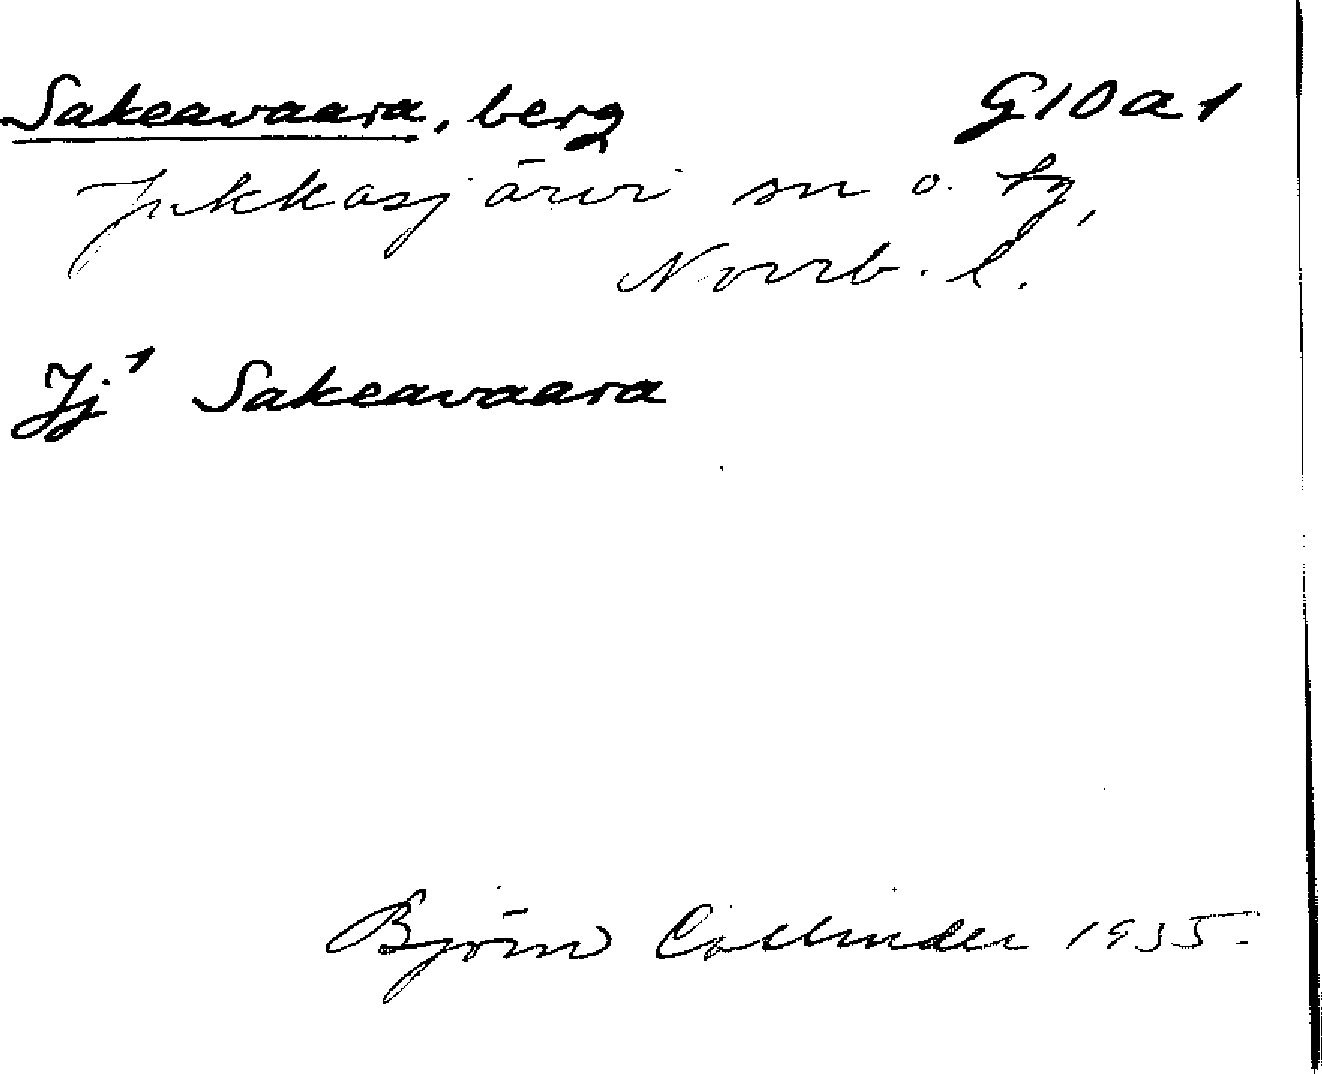 Sakeavaara, berg G10a1
Jukkasjärvi sn o. tg,
Norrb. l.
Jj¹ Sakeavaara
Björn Collinder 1935.